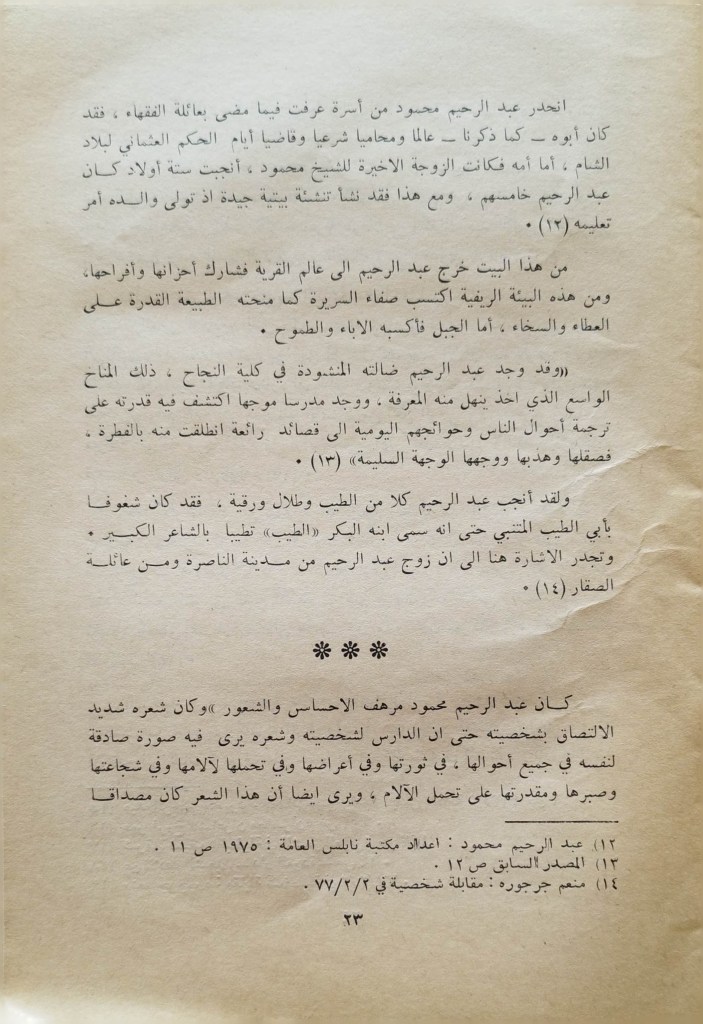 انحدر عبد الرحيم محمود من أسرة عرفت فيما مضى بعائلة الفقهاء ، فقد
كان أبوه ــ كما ذكرنا ــ عالما ومحاميا شرعيا وقاضيا أيام الحكم العثماني لبلاد
الشام ، أما أمه فكانت الزوجة الاخيرة للشيخ محمود ، أنجبت ستة أولاد كــان
عبد الرحيم خامسهم ، ومع هذا فقد نشأ تنشئة بيتية جيدة اذ تولى والــده أمر
تعليمه (١٢) •
من هذا البيت خرج عبد الرحيم الى عالم القرية فشارك أحزانها وأفراحها،
ومن هذه البيئة الريفية اكتسب صفاء السريرة كما منحته الطبيعة القدرة علــى
العطاء والسخاء ، أما الجبل فأكسبه الاباء والطموح •
«وقد وجد عبد الرحيم ضالته المنشودة في كلية النجاح ، ذلك المناخ
الواسع الذي اخذ ينهل منه المعرفة ، ووجد مدرسا موجها اكتشف فيه قدرته على
ترجمة أحوال الناس وحوائجهم اليومية الى قصائد رائعة انطلقت منه بالفطرة ،
فصقلها وهذبها ووجهها الوجهة السليمة» (١٣) •
ولقد أنجب عبد الرحيم كلا من الطيب وطلال ورقية ، فقد كان شغوفــا
بأبي الطيب المتنبي حتى انه سمى ابنه البكر «الطيب» تطيبا بالشاعر الكبيــر •
وتجدر الاشارة هنا الى ان زوج عبد الرحيم من مــدينة الناصرة ومــن عائلــة
الصقار (١٤) •
❋ ❋ ❋
كــان عبد الرحيم محمود مرهف الاحساس والشعور »وكان شعره شديد
الالتصاق بشخصيته حتى ان الدارس لشخصيته وشعره يرى فيه صورة صادقة
لنفسه في جميع أحوالها ، في ثورتها وفي أعراضها وفي تحملها لآلامها وفي شجاعتها
وصبرها ومقدرتها على تحمل الآلام ، ويرى ايضا أن هذا الشعر كان مصداقــا
١٢) عبد الرحيم محمود : اعداد مكتبة نابلس العامة : ١٩٧٥ ص ١١ .
١٣) المصدر السابق ص ١٢ .
١٤) منعم جرجوره : مقابلة شخصية في ٧٧/٢/٢ .
٢٣